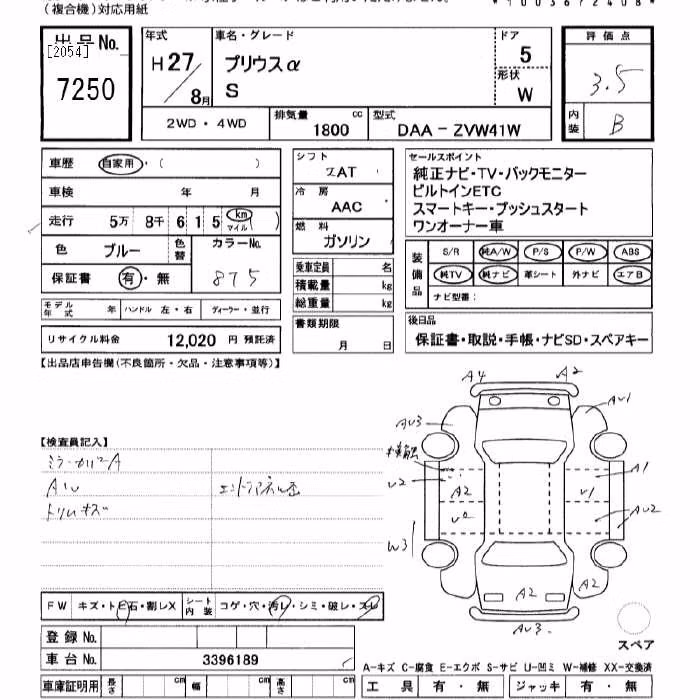 (複合機)対応用紙
*10036724084*
出品No.
[2054]
7250
年式
H27/8月
車名・グレード
プリウスα
S
ドア
5
形状
W
評価点
3.5
内装
B
2WD・4WD
排気量
1800 cc
型式
DAA-ZVW41W
車歴 自家用・( )
車検 年 月
走行 5万 8千 6 1 5 km マイル ( )
色 ブルー 色替 カラーNo. 875
保証書 有・無
モデル年式 年 ハンドル 左・右 ディーラー・並行
リサイクル料金 12,020 円 預託済
シフト
AT
冷房
AAC
燃料
ガソリン
乗車定員 名
積載量 kg
総重量 kg
書類期限
月 日
セールスポイント
純正ナビ・TV・バックモニター
ビルトインETC
スマートキー・プッシュスタート
ワンオーナー車
装備品
S/R 純A/W P/S P/W ABS
純TV 純ナビ 革シート 外ナビ エアB
ナビ型番:
後日品
保証書・取説・手帳・ナビSD・スペアキー
【出品店申告欄(不良箇所・欠品・注意事項等)】
【検査員記入】
ミラーカバーA
AU
トリムキズ
エンドパネル歪
A4
A2
AU3
AU1
U2
A2
A1
U1
AU2
W3
A2
A2
AU3
スペア
FW キズ・トビ石・割レX シート内装 コゲ・穴・汚レ・シミ・破レ・スレ
登録No.
車台No. 3396189
車庫証明用 長さ cm 幅 cm 高さ cm
A-キズ C-腐食 E-エクボ S-サビ U-凹ミ W-補修 XX-交換済
工具 有・無 ジャッキ 有・無